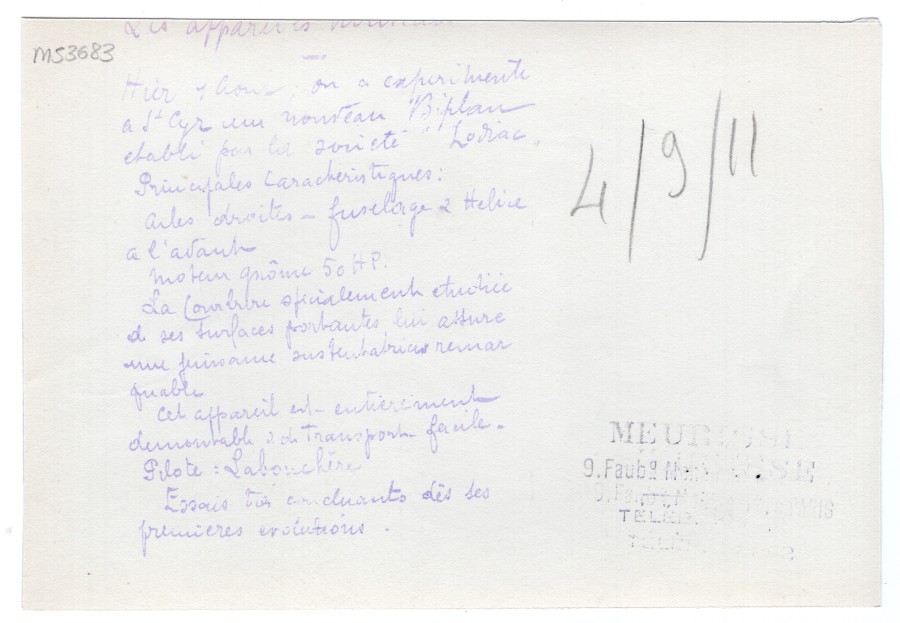 Les appareils nouveaux
MS3683
Hier 4 Aout, on a experimente
a St Cyr un nouveau "Biplan
etabli par la société "Zodiac"
Principales Caracteristiques:
Ailes droites - fuselage & Helice
a l'avant
moteur gnôme 50 HP.
La Courbure specialement etudiée
de ses surfaces portantes lui assure
une puissance sustentatrice remar
quable
Cet appareil est entierement
demontable & de Transport facile.
Pilote : Labouchère
Essais tres concluants dès ses
premieres evolutions.
4/9/11
MEURISSE
9. Faubg
PARIS
TÉLÉG.
TÉLÉ